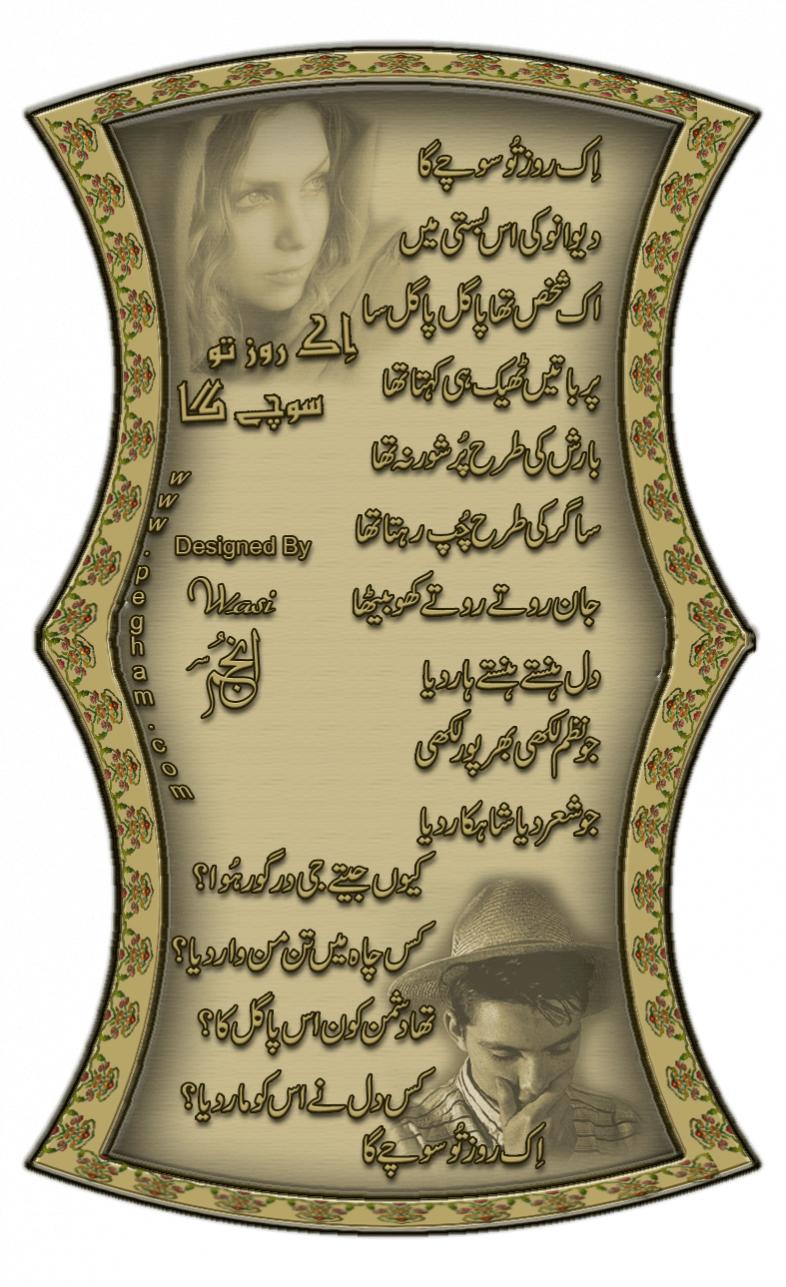 اِک روز تُو سوچے گا
دیوانو کی اس بستی میں
اک شخص تھا پاگل پاگل سا
پر باتیں ٹھیک ہی کہتا تھا
بارش کی طرح پُر شور نہ تھا
ساگر کی طرح چُپ رہتا تھا
جان روتے روتے کھو بیٹھا
دل ہنستے ہنستے ہار دیا
جو نظم لکھی بھر پور لکھی
جو شعر دیا شاہکار دیا
کیوں جیتے جی در گور ہُوا؟
کس چاہ میں تن من وار دیا؟
تھا دشمن کون اس پاگل کا؟
کس دل نے اس کو مار دیا؟
اِک روز تُو سوچے گا
اِک روز تو
سوچے گا
www.pegham.com
Designed By
Wasi
انجُم